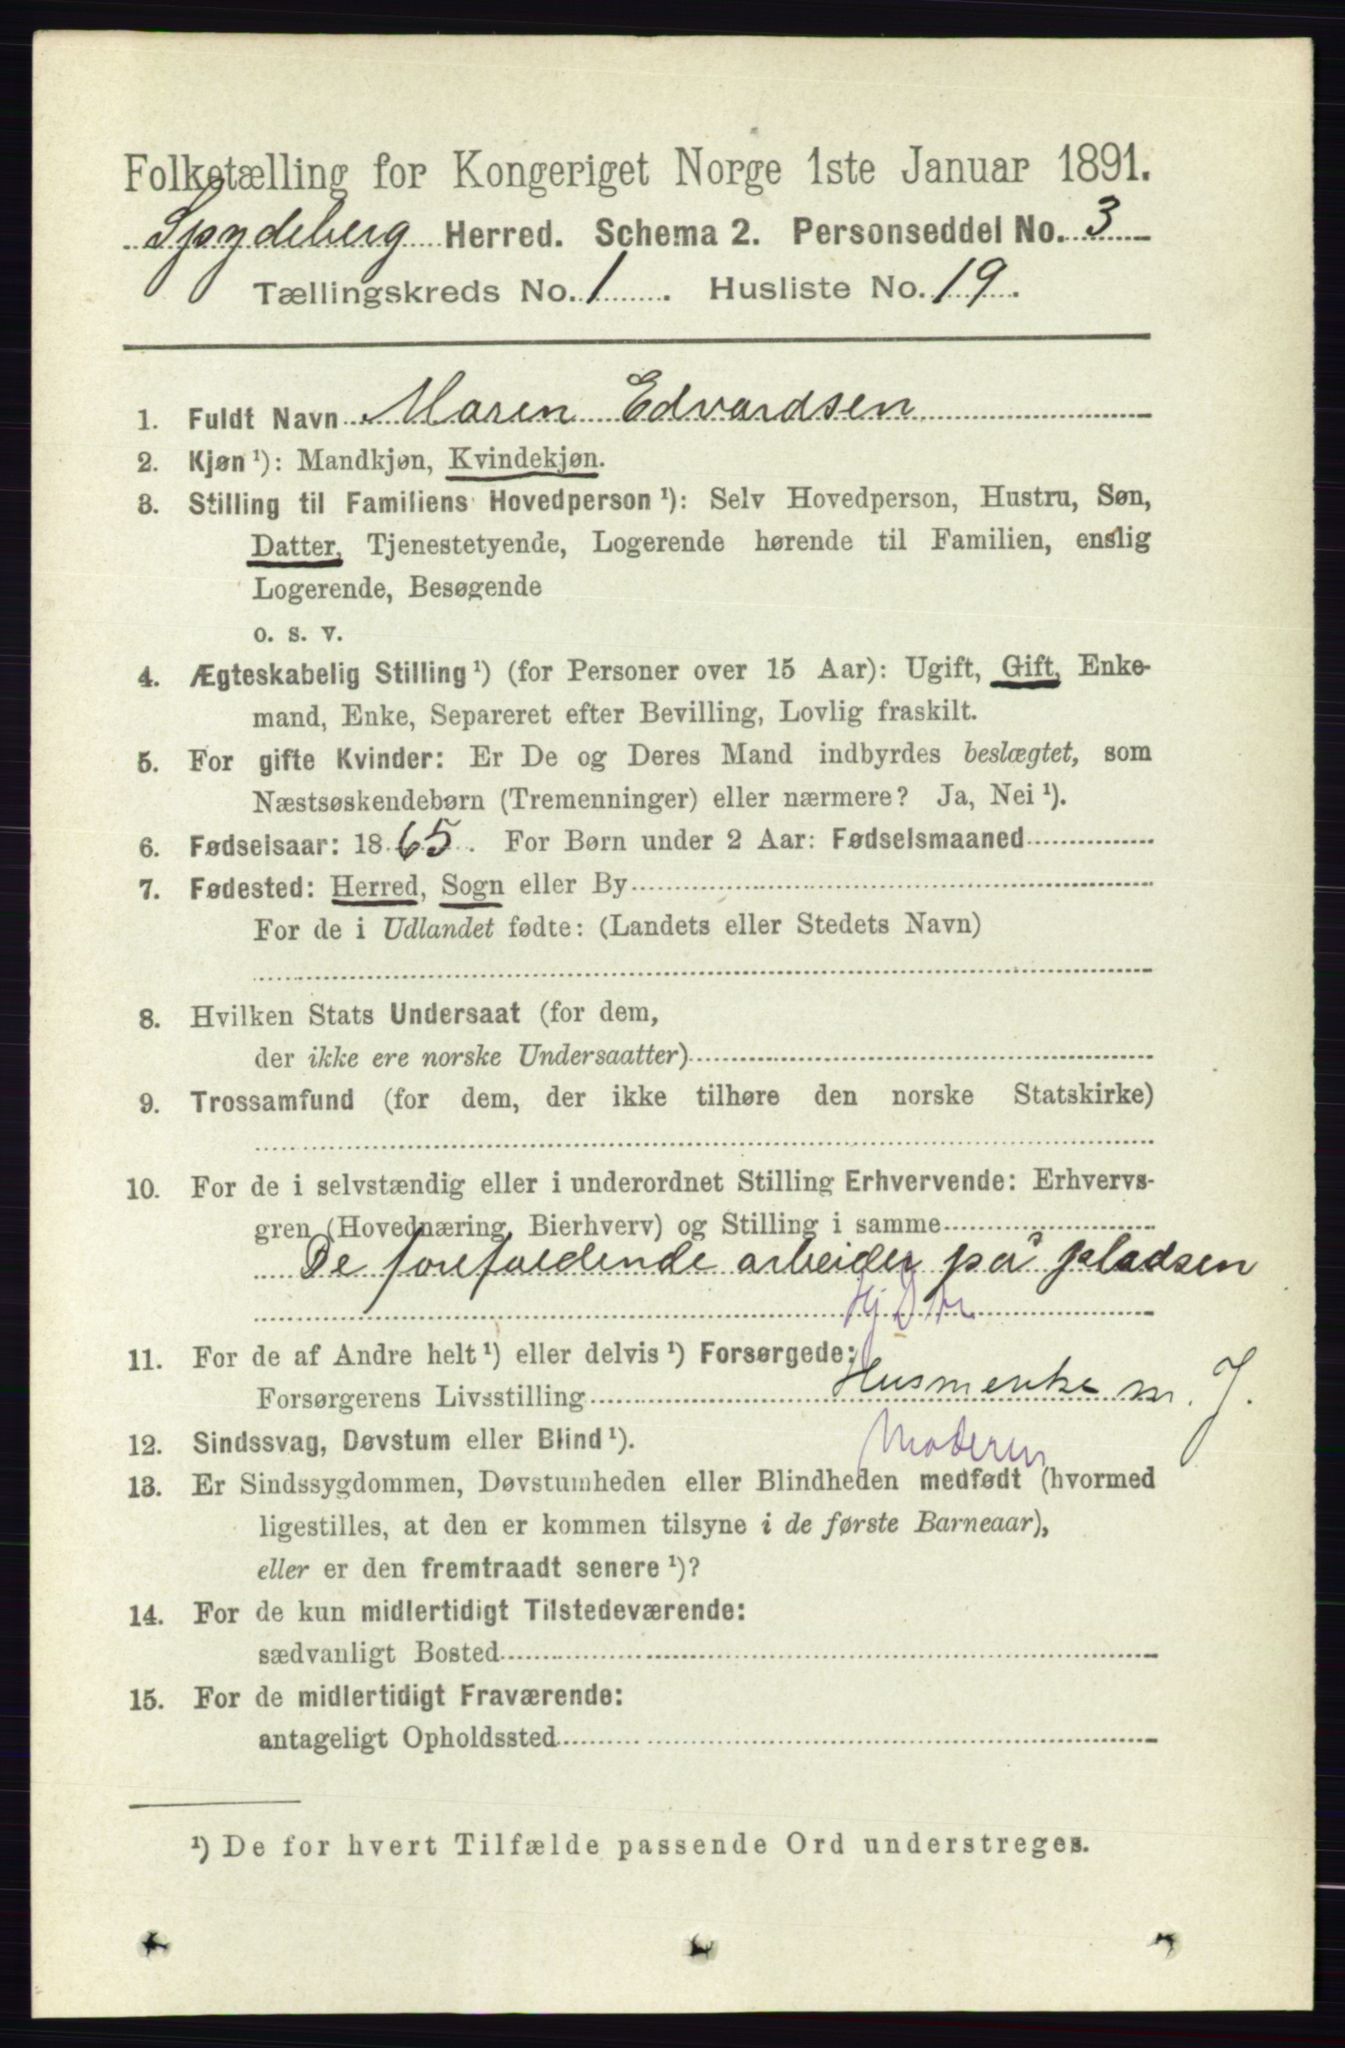 Folketælling for Kongeriget Norge 1ste Januar 1891.
Spydeberg Herred. Schema 2. Personseddel No. 3
Tællingskreds No. 1. Husliste No. 19.
1. Fuldt Navn Maren Edvardsen
2. Kjøn ¹): Mandkjøn, Kvindekjøn.
3. Stilling til Familiens Hovedperson ¹): Selv Hovedperson, Hustru, Søn,
Datter, Tjenestetyende, Logerende hørende til Familien, enslig
Logerende, Besøgende
o. s. v.
4. Ægteskabelig Stilling ¹) (for Personer over 15 Aar): Ugift, Gift, Enke-
mand, Enke, Separeret efter Bevilling, Lovlig fraskilt.
5. For gifte Kvinder: Er De og Deres Mand indbyrdes beslægtet, som
Næstsøskendebørn (Tremenninger) eller nærmere? Ja, Nei ¹).
6. Fødselsaar: 1865. For Børn under 2 Aar: Fødselsmaaned
7. Fødested: Herred, Sogn eller By
For de i Udlandet fødte: (Landets eller Stedets Navn)
8. Hvilken Stats Undersaat (for dem,
der ikke ere norske Undersaatter)
9. Trossamfund (for dem, der ikke tilhøre den norske Statskirke)
10. For de i selvstændig eller i underordnet Stilling Erhvervende: Erhvervs-
gren (Hovednæring, Bierhverv) og Stilling i samme
De forefaldende arbeider på pladsen
11. For de af Andre helt ¹) eller delvis ¹) Forsørgede:
Forsørgerens Livsstilling Husmenke m. J.
Moderen
12. Sindssvag, Døvstum eller Blind ¹).
13. Er Sindssygdommen, Døvstumheden eller Blindheden medfødt (hvormed
ligestilles, at den er kommen tilsyne i de første Barneaar),
eller er den fremtraadt senere ¹)?
14. For de kun midlertidigt Tilstedeværende:
sædvanligt Bosted
15. For de midlertidigt Fraværende:
antageligt Opholdssted
¹) De for hvert Tilfælde passende Ord understreges.